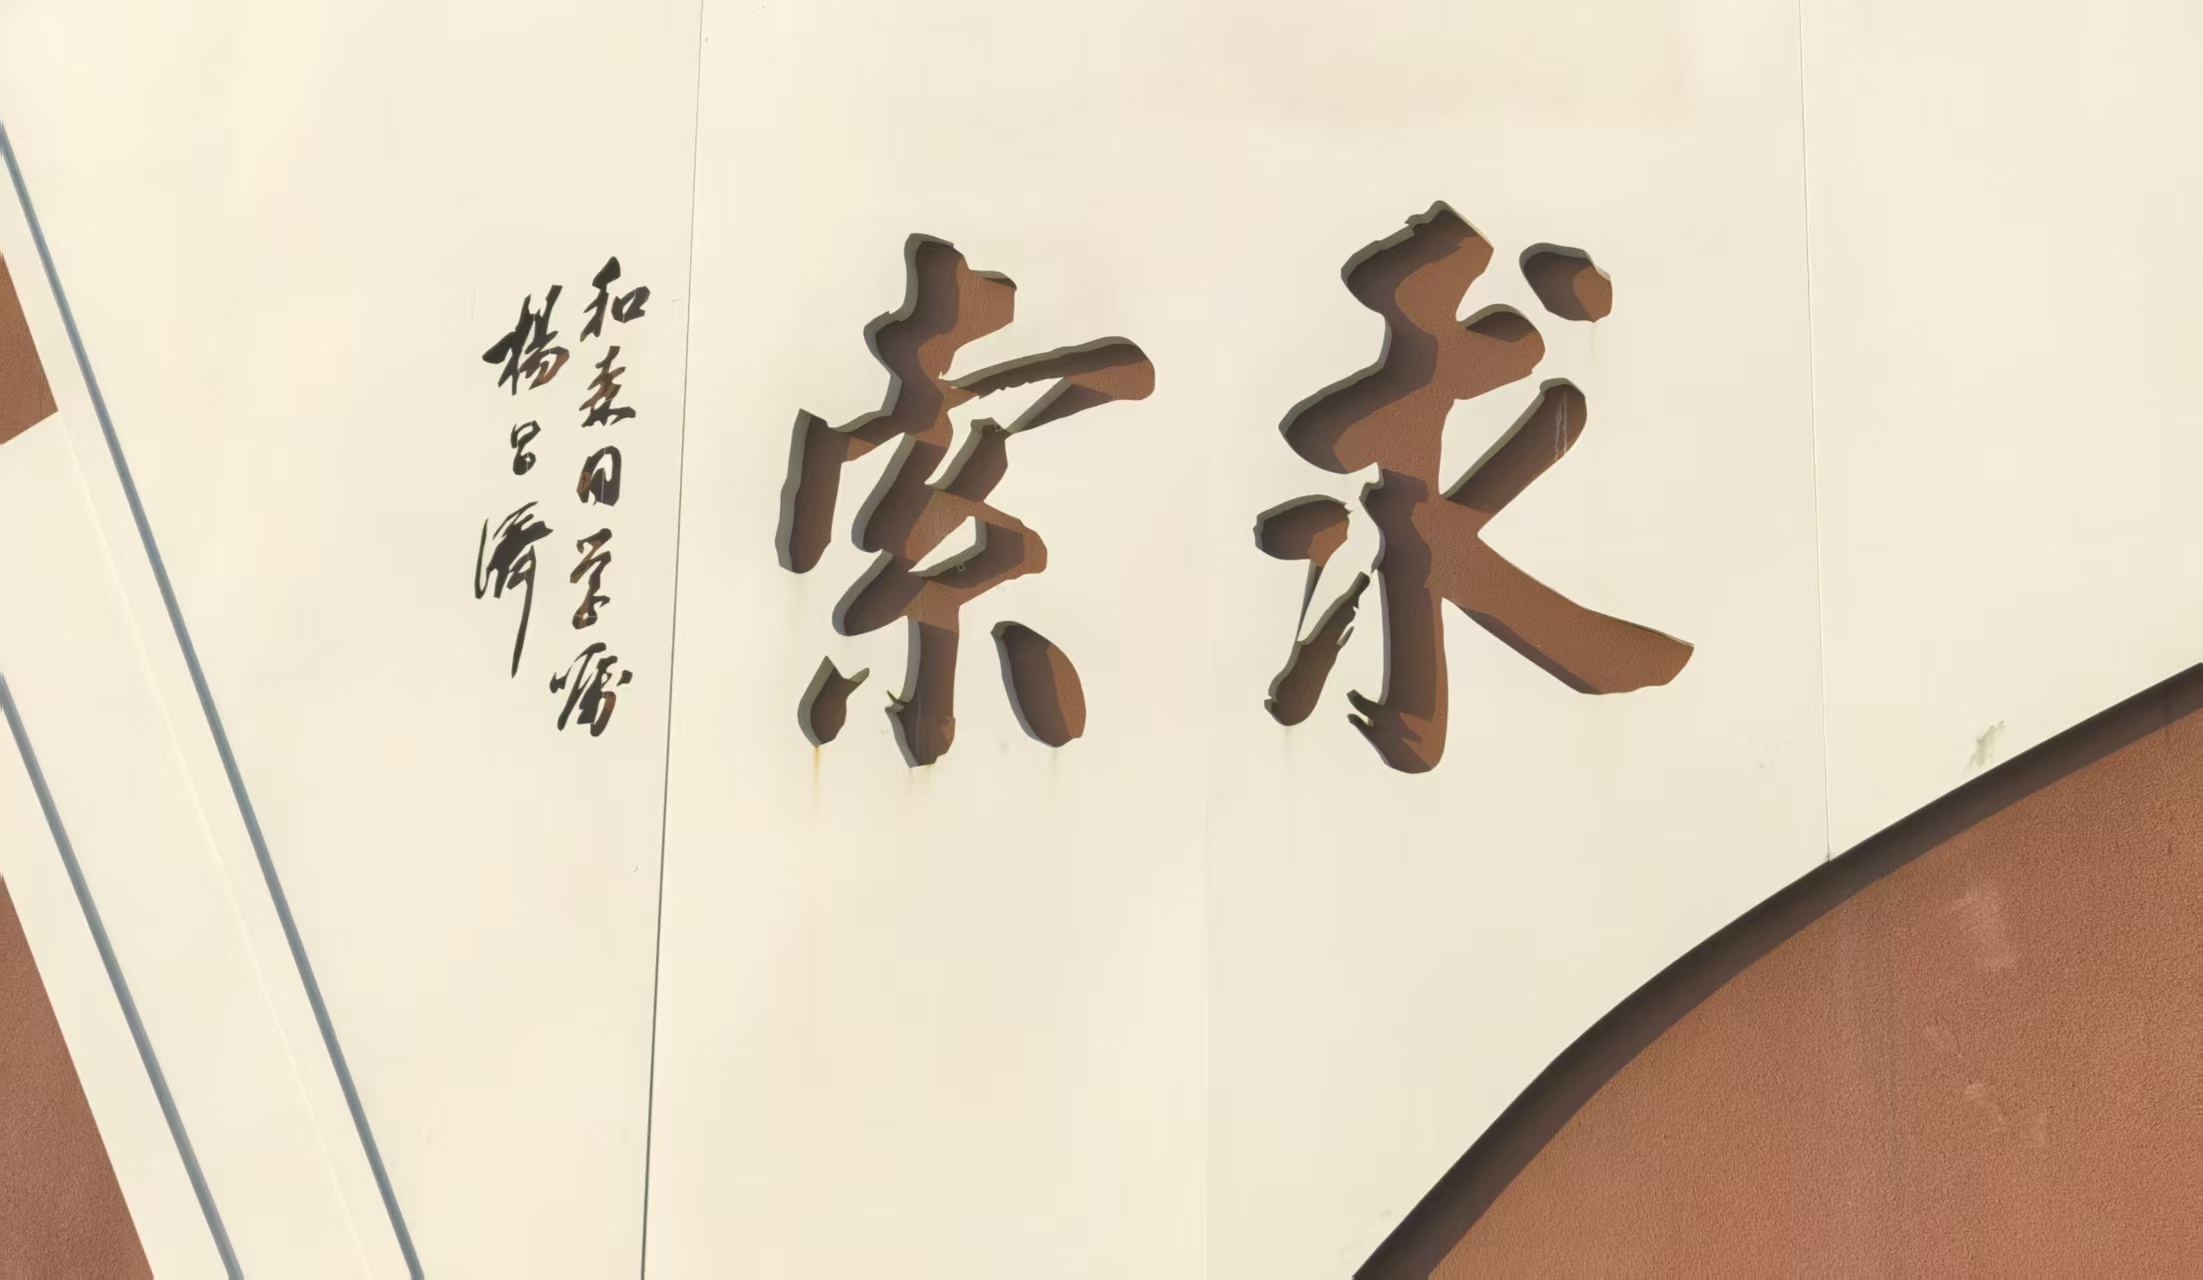 求索
和森同学嘱
楊昌濟